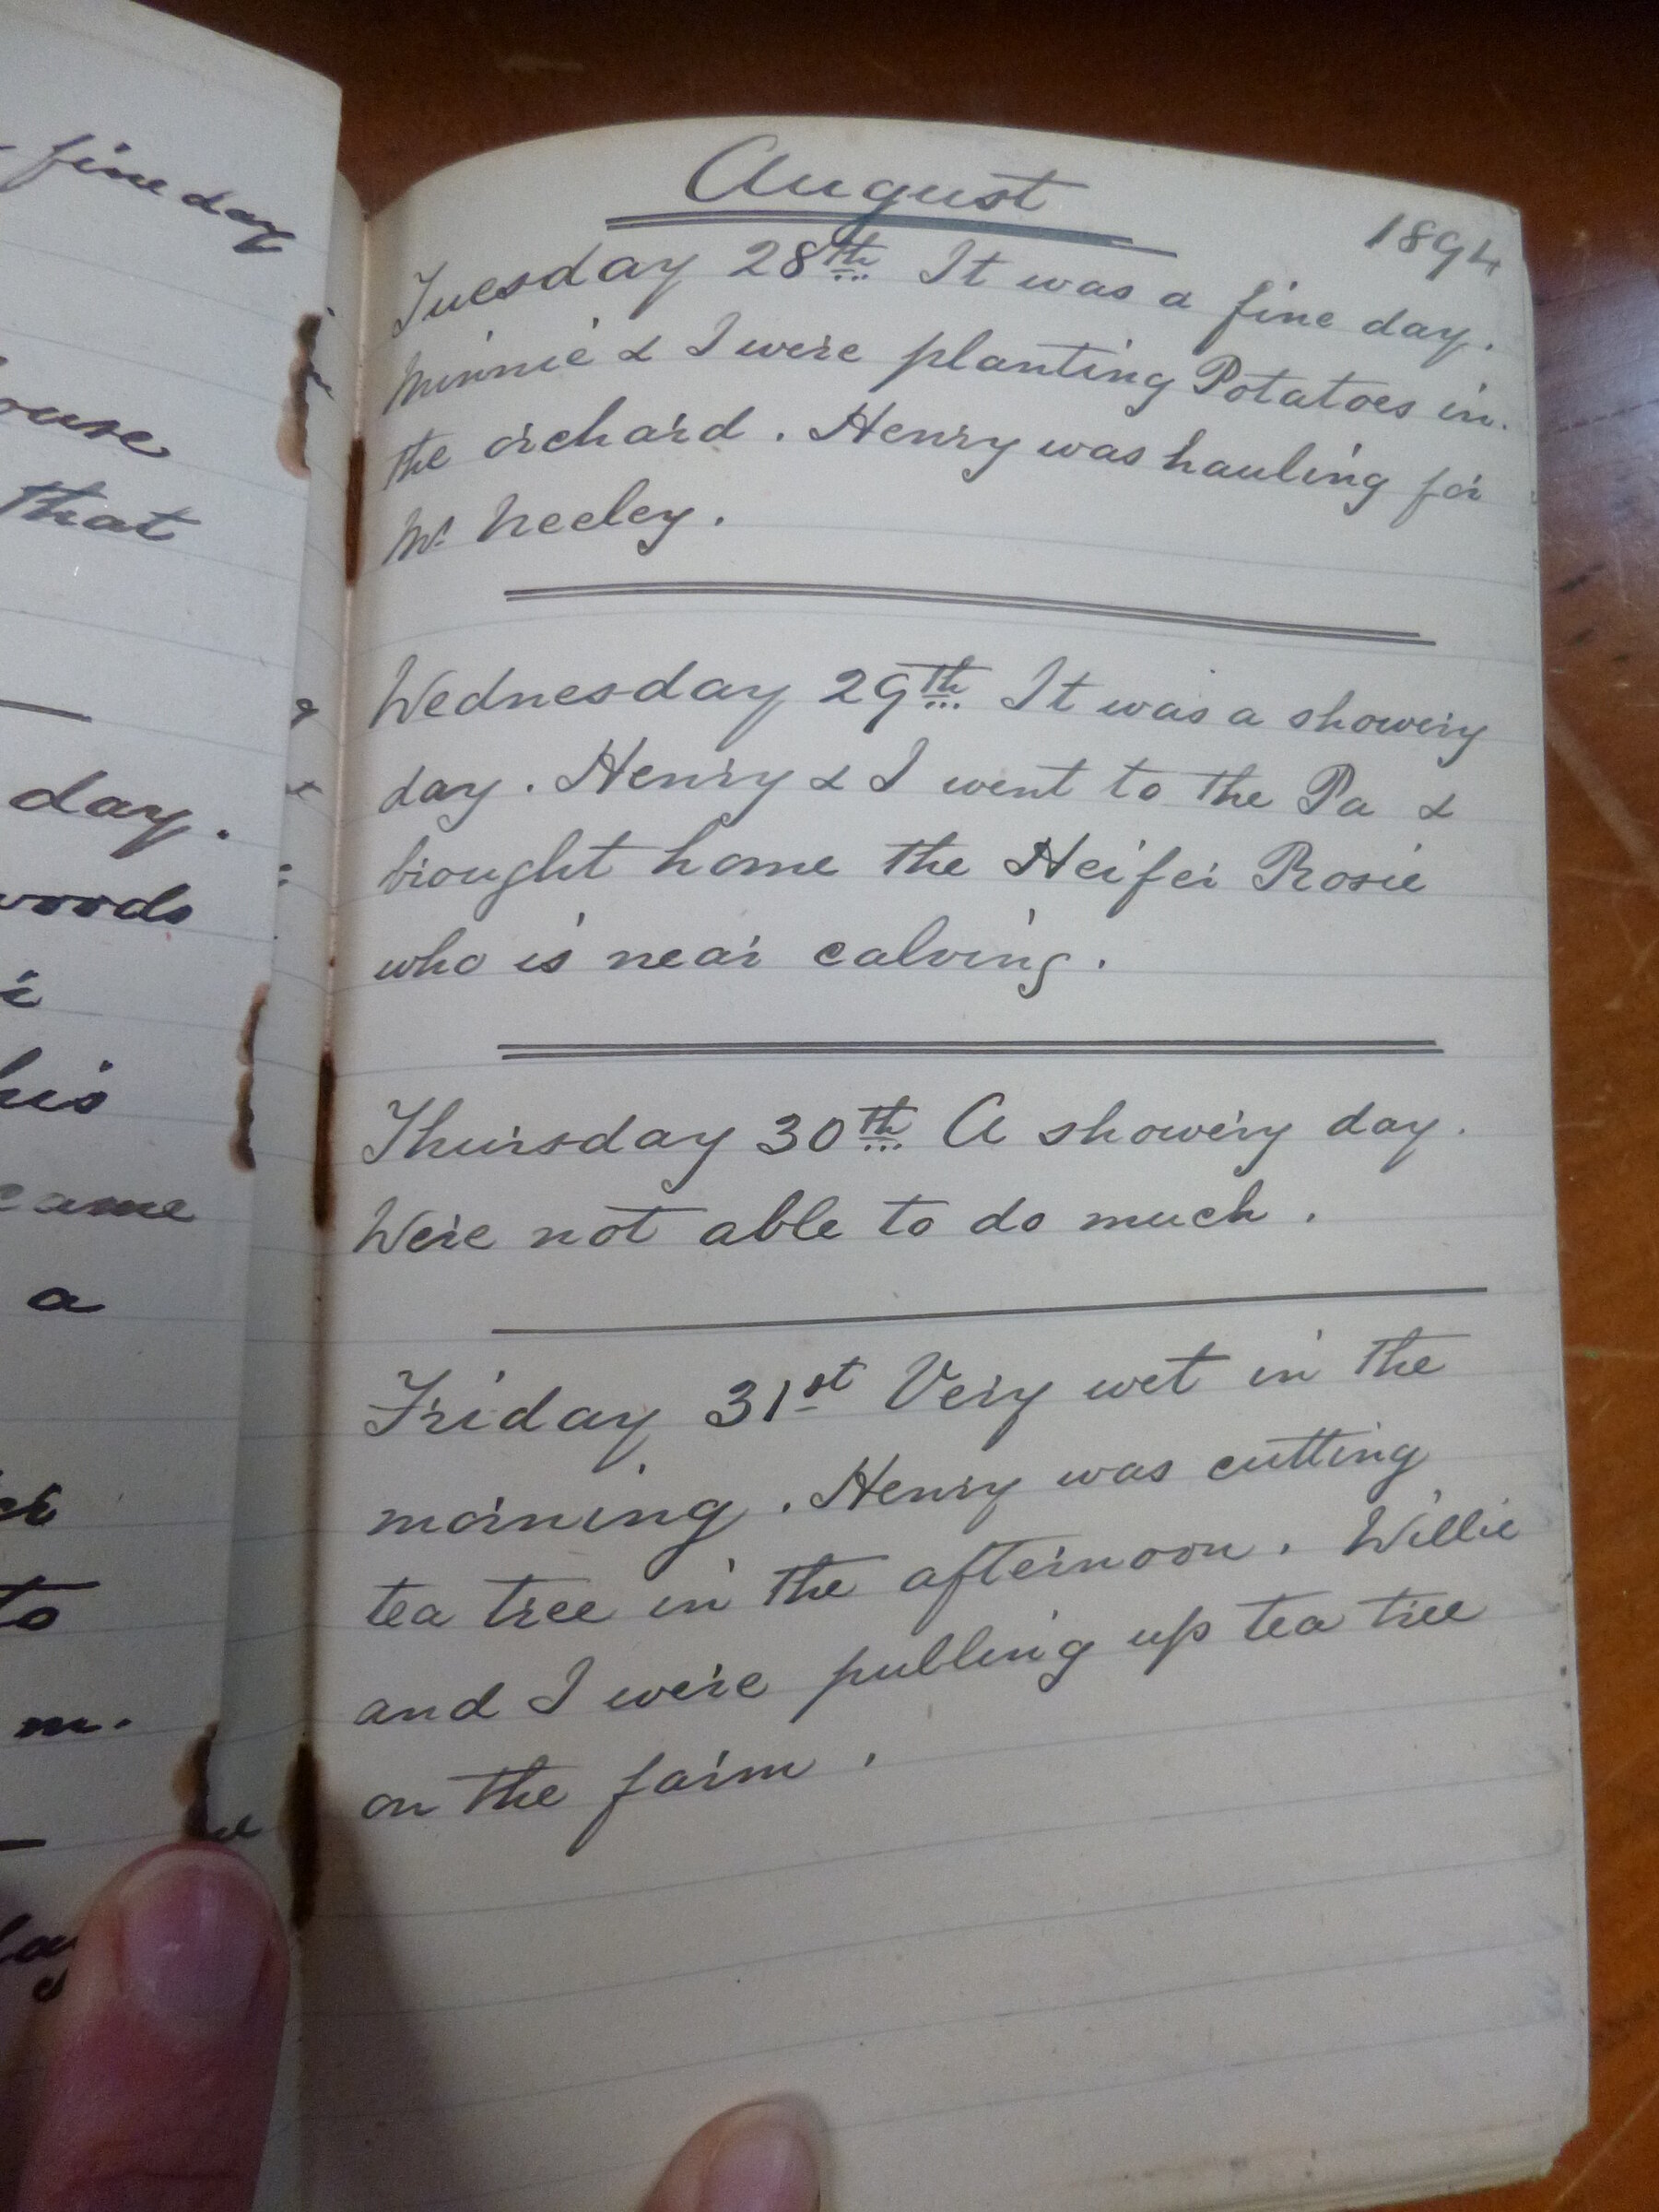 fine day
ouse
that
day.
woods
his
came
a
to
m.
August
1894
Tuesday 28th It was a fine day.
Minnie & I were planting Potatoes in
the orchard. Henry was hauling for
Mr Neeley.
Wednesday 29th It was a showery
day. Henry & I went to the Pa &
brought home the Heifer Rosie
who is near calving.
Thursday 30th A showery day.
Were not able to do much.
Friday 31st Very wet in the
morning. Henry was cutting
tea tree in the afternoon. Willie
and I were pulling up tea tree
on the farm.